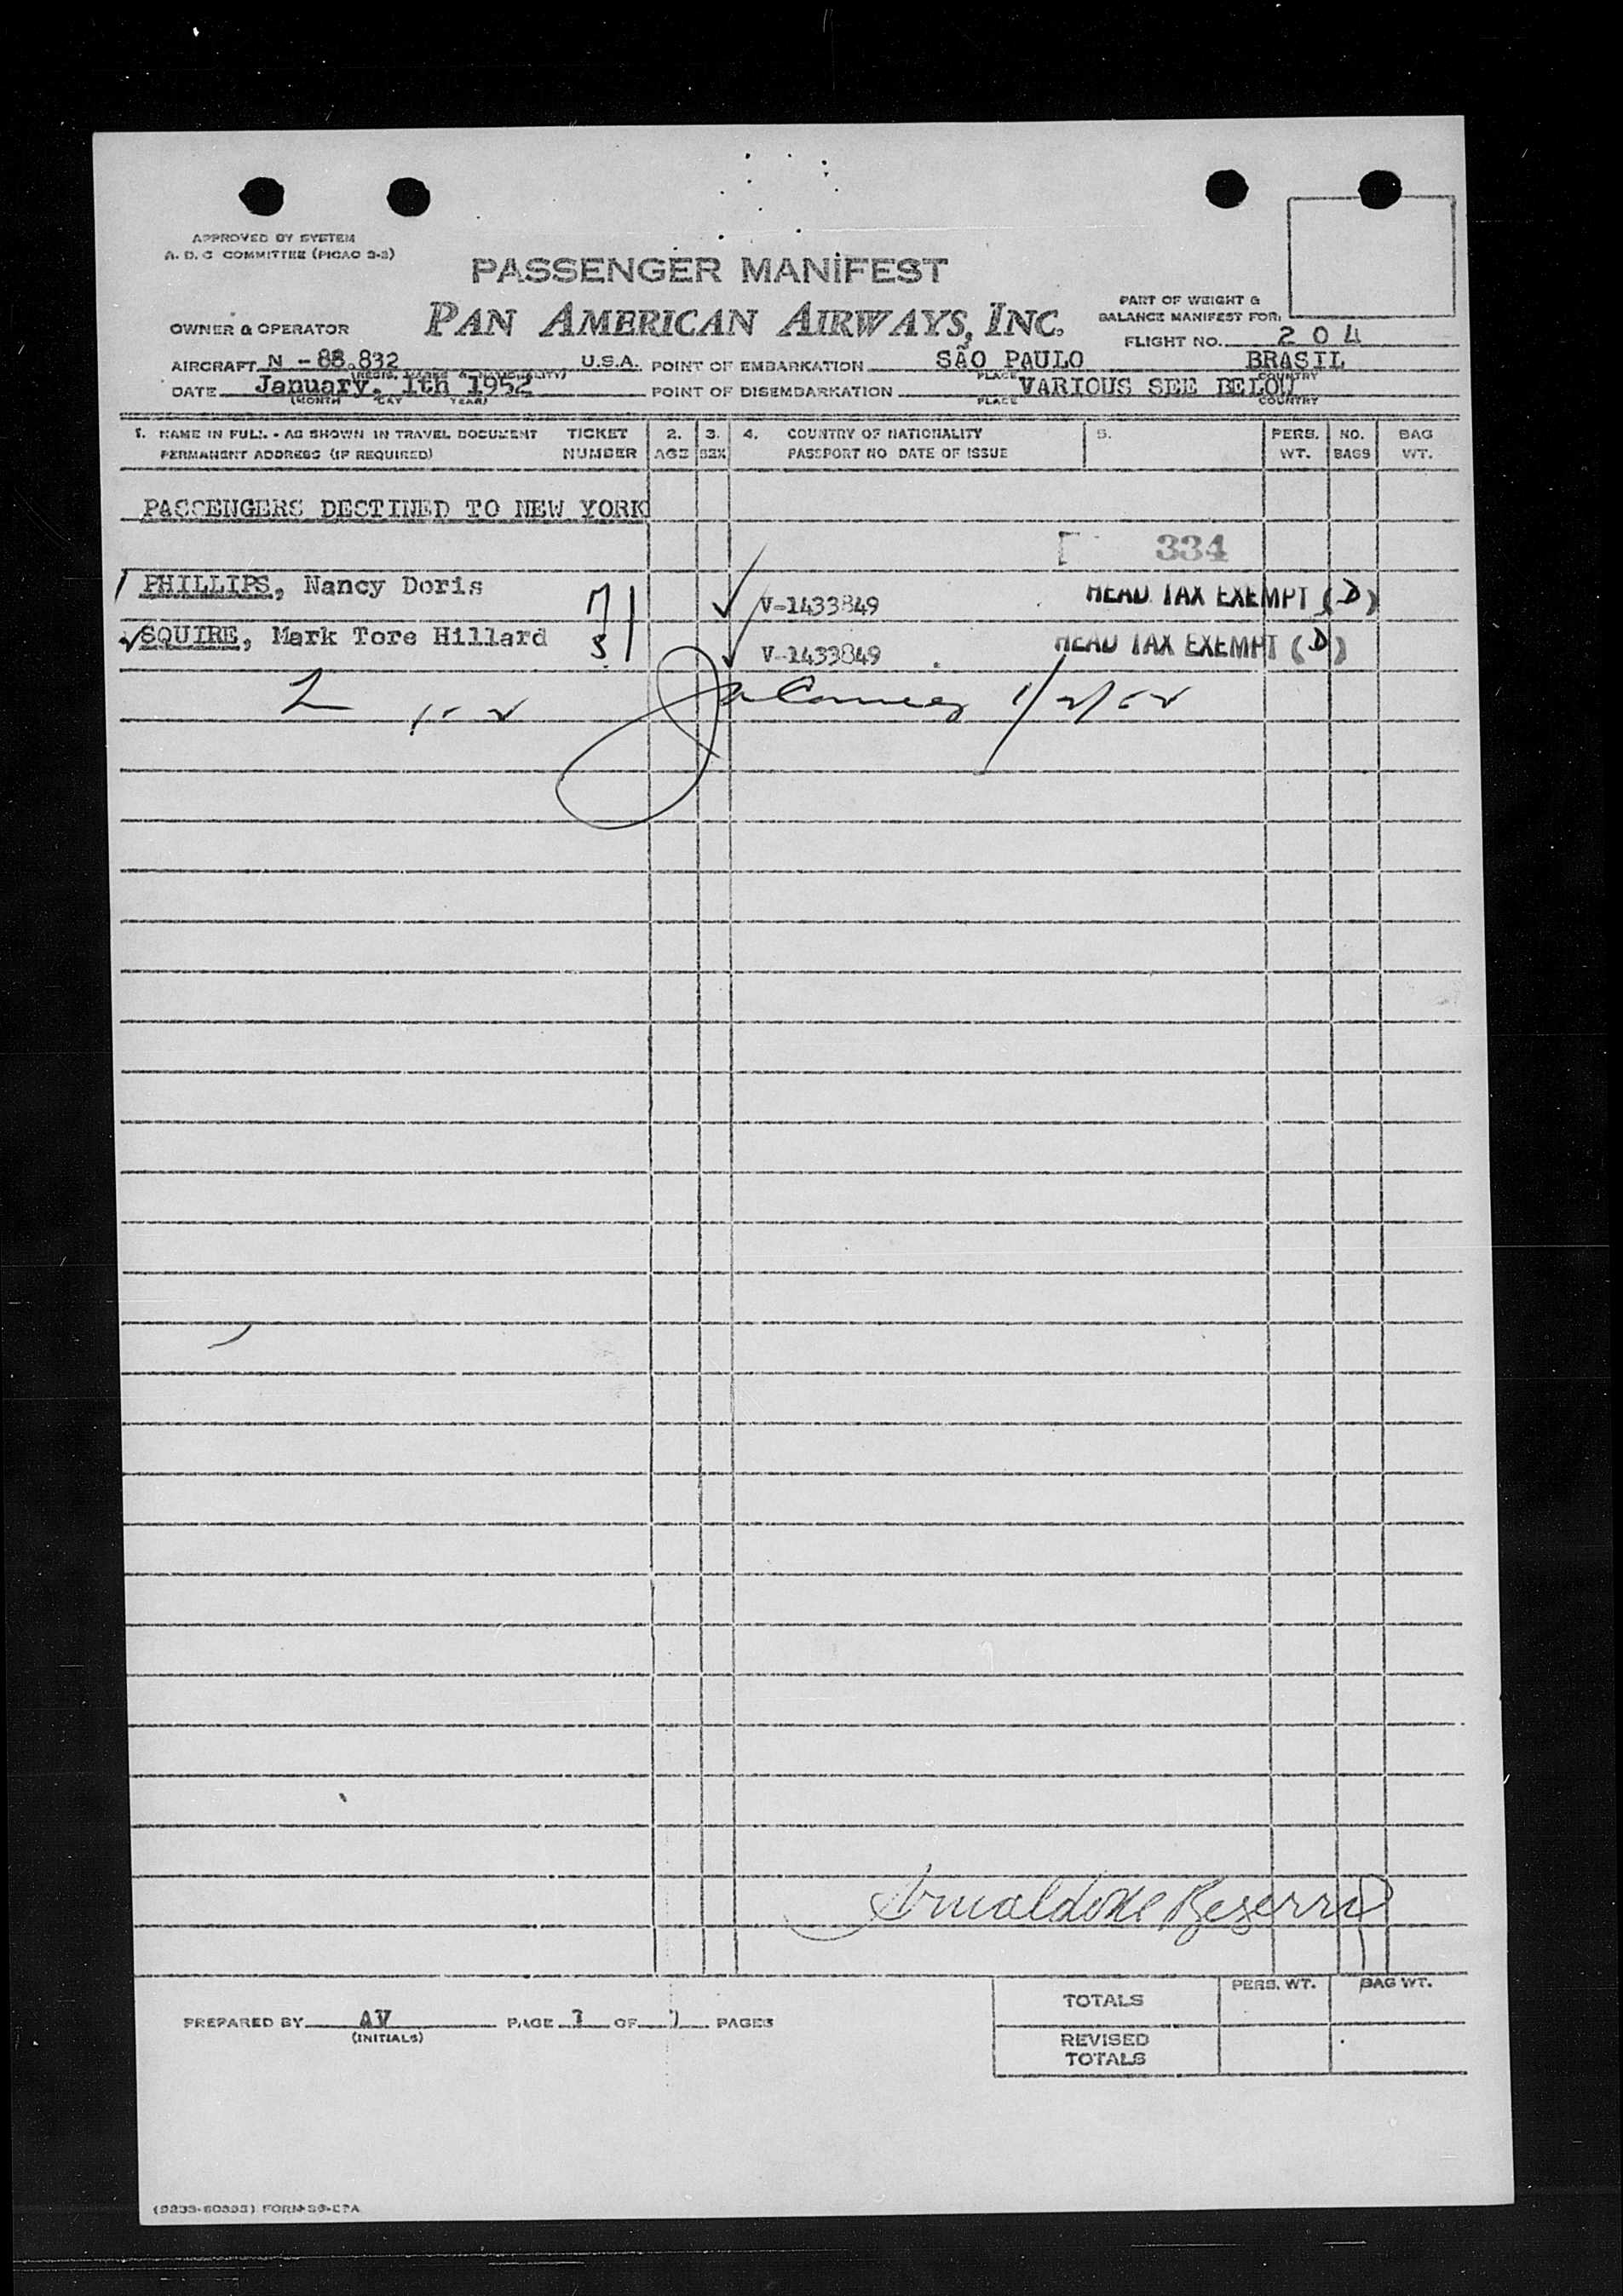 APPROVED BY SYSTEM
A. D. C COMMITTEE (PICAO 3-2)
PASSENGER MANIFEST
PAN AMERICAN AIRWAYS, INC.
PART OF WEIGHT &
BALANCE MANIFEST FOR:
OWNER & OPERATOR
FLIGHT NO. 204
AIRCRAFT N -88.832 U.S.A. POINT OF EMBARKATION SÃO PAULO BRASIL
PLACE COUNTRY
DATE January, 1th 1952 POINT OF DISEMBARKATION VARIOUS SEE BELOW
(MONTH DAY YEAR) PLACE COUNTRY
1. NAME IN FULL - AS SHOWN IN TRAVEL DOCUMENT TICKET 2. 3. 4. COUNTRY OF NATIONALITY 5. PERS. NO. BAG
PERMANENT ADDRESS (IF REQUIRED) NUMBER AGE SEX PASSPORT NO DATE OF ISSUE WT. BAGS WT.
PASSENGERS DESTINED TO NEW YORK
334
PHILLIPS, Nancy Doris V-1433849 HEAD TAX EXEMPT (D)
SQUIRE, Mark Tore Hillard V-1433849 HEAD TAX EXEMPT (D)
1/2/52
TOTALS PERS. WT. BAG WT.
PREPARED BY AV PAGE OF PAGES
(INITIALS)
REVISED
TOTALS